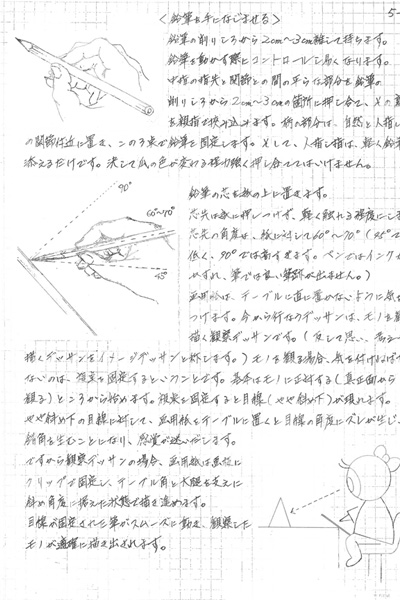 5-
<鉛筆を手になじませる>
鉛筆の削りしろから2cm〜3cm離して持ちます。
鉛筆を動かす際にコントロールし易くなります。
中指の指先と関節との間の平らな部分を鉛筆の
削りしろから2cm〜3cmの箇所に押し合て、その真
を親指で挟み込みます。柄の部分は、自然と人指し
の関節付近に置き、この3点で鉛筆を固定します。そして、人指し指は、軽く鉛筆
添えるだけです。決して爪の色が変わる様力強く押し合ててはいけません。
90°
60°〜70°
45°
鉛筆の芯を紙の上に置きます。
芯先は紙に押しつけず、軽く触れる程度にしま
芯先の角度は、紙に対して60°〜70°(45°で
低く、90°では高すぎます。ペンではインクが
かすれ、筆では良い筆跡が出ません。)
画用紙は、テーブルに直に置かないように気を
つけます。今から行なうデッサンは、モノを観
描く観察デッサンです。(反して思い、考え
描くデッサンをイメージデッサンと称します。)モノを観る場合、気を付けなけれ
ないのは、視点を固定するということです。基本はモノに正対する(真正面から
観る)ところから始めます。視点を固定すると目線(やや斜め下)が現れます。
やや斜め下の目線に対して、画用紙をテーブルに置くと目線の角度にズレが生じ、
鈍角を生むことになり、感覚が迷い出します。
ですから観察デッサンの場合、画用紙は画板に
クリップで固定し、テーブル角と大腿を支えに
斜め角度に据えた状態で描き進めます。
目線が固定された筆がスムーズに動き、観察した
モノが適確に描き出されます。